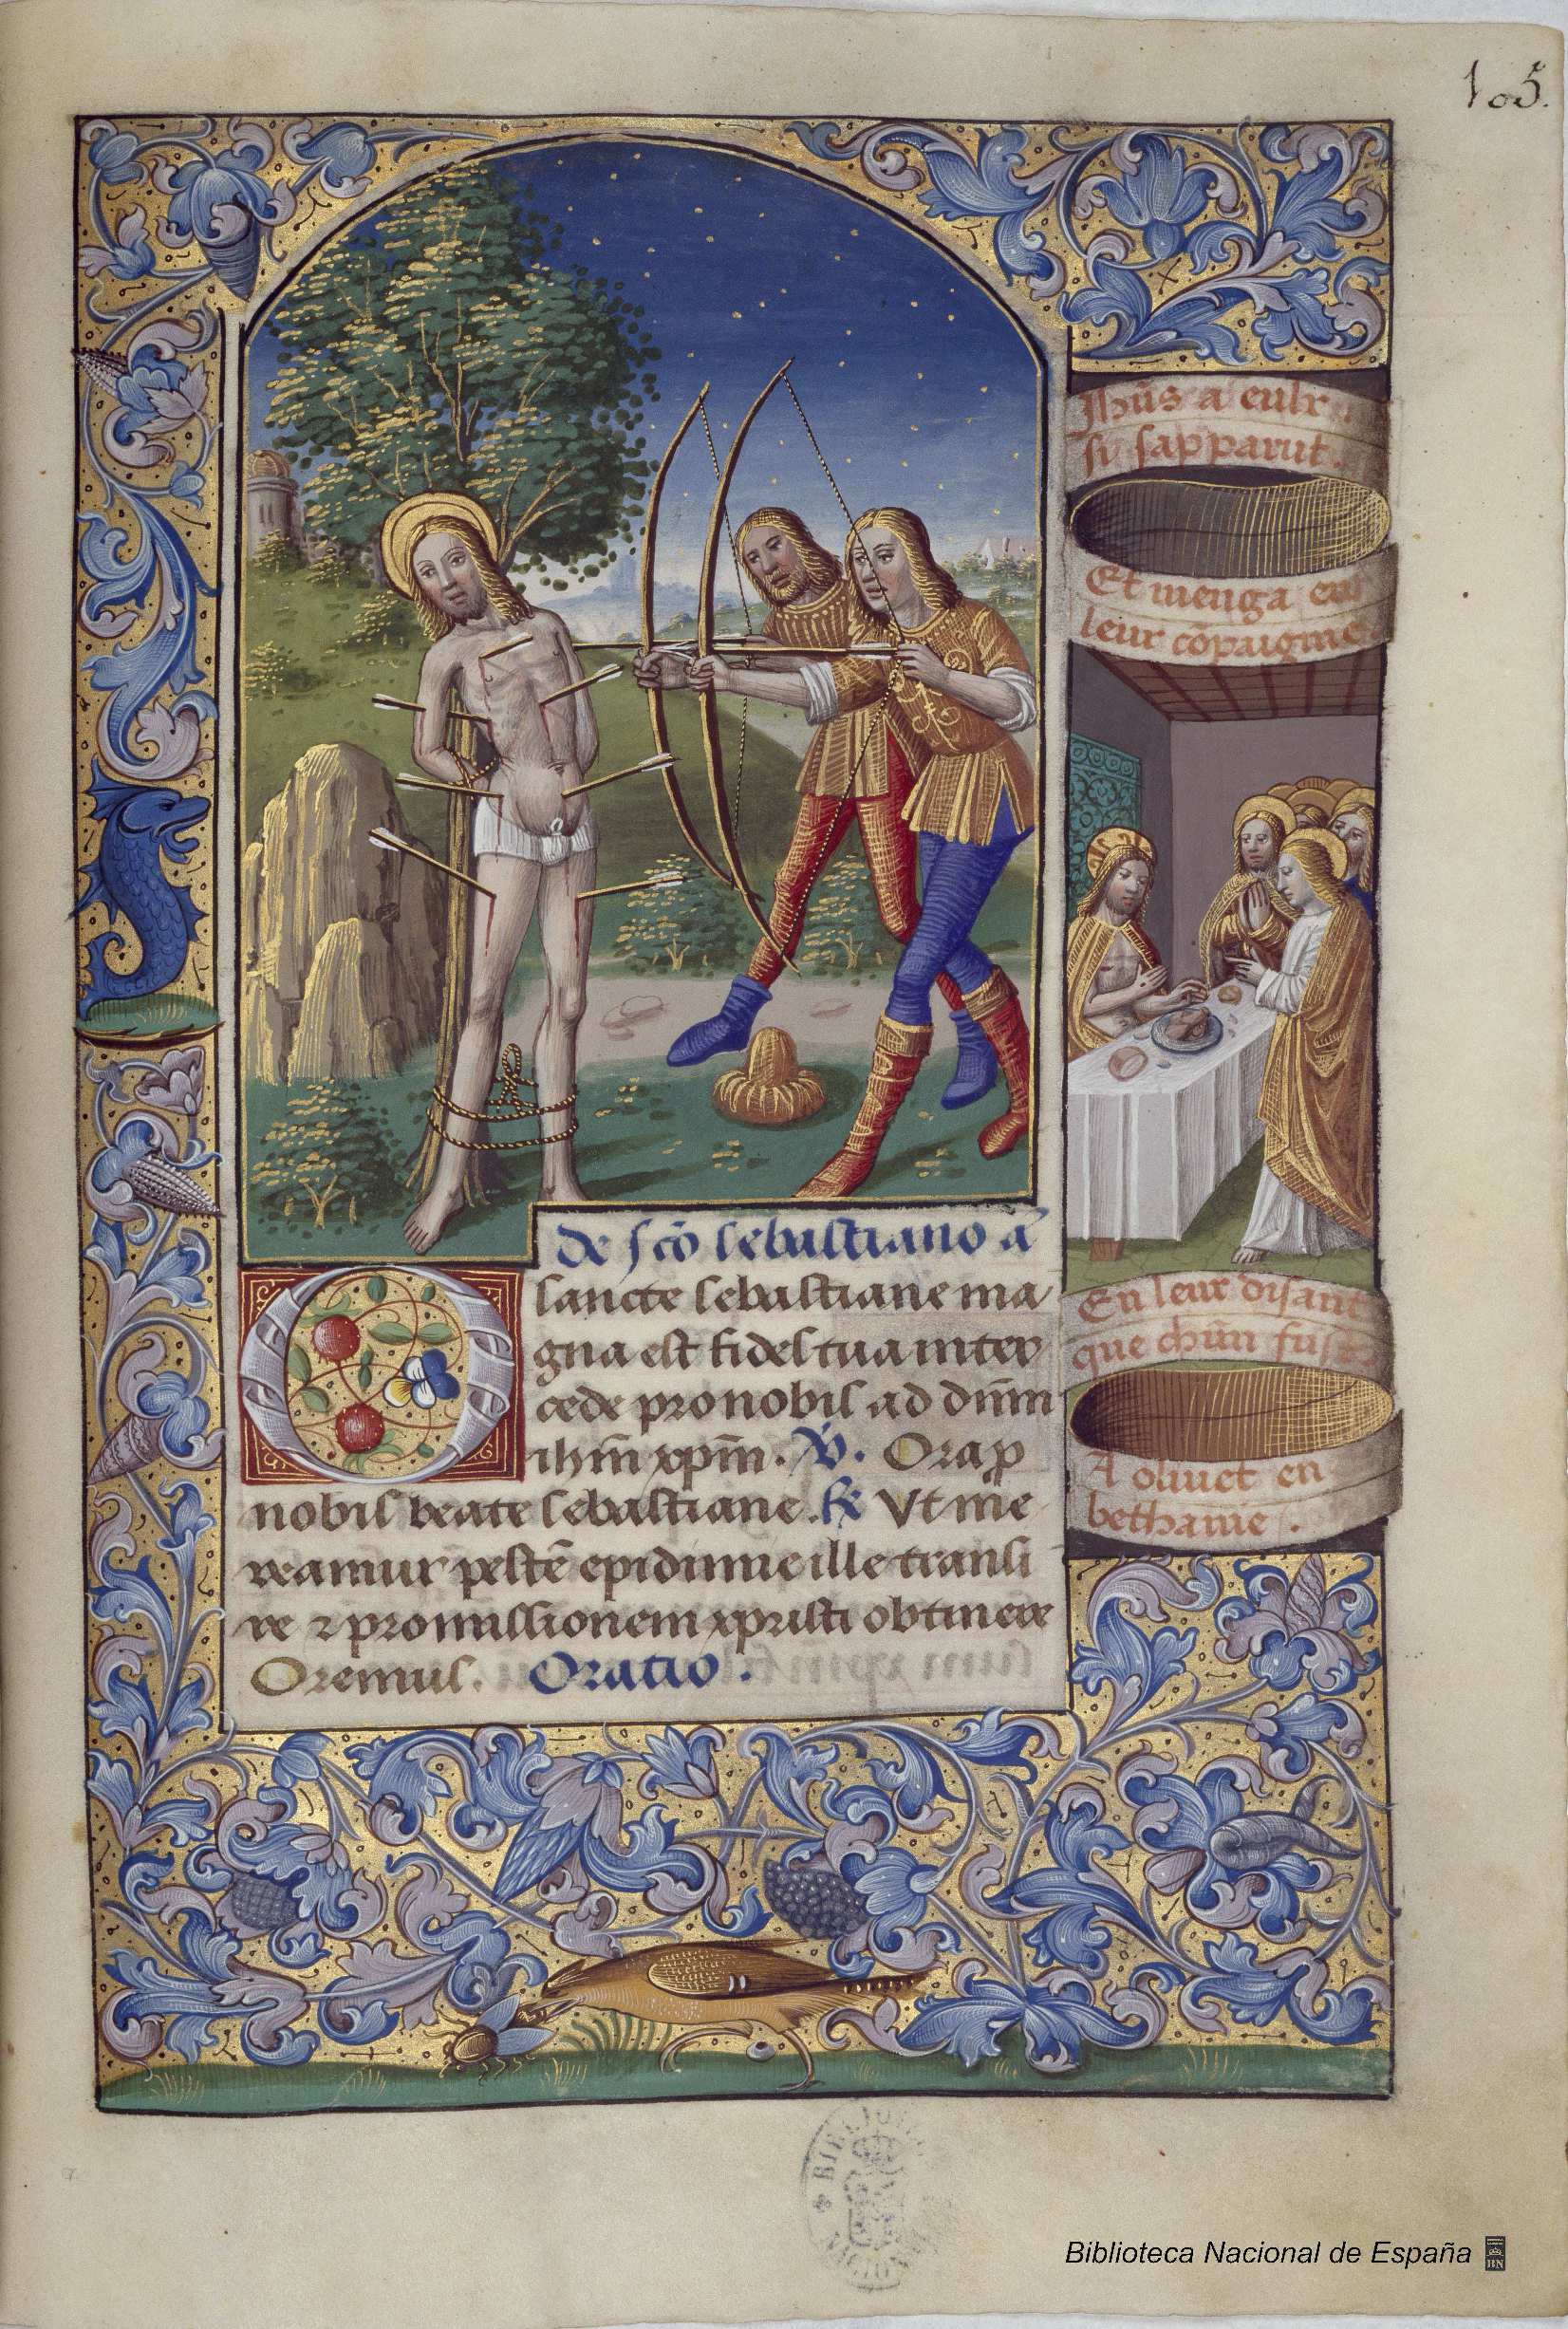 105.
Jhũs a eulx
si sapparut.
Et menga en
leur cõpaignie
En leur disant
que chũn fust
A oliuet en
bethanie.
De scõ sebastiano añ
O sancte sebastiane ma
gna est fides tua inter
cede pro nobis ad dñm
ihm̃ xpm̃. V̓. Ora p
nobis beate sebastiane. R̓ Vt me
reamur pestẽ epidimie ille transi
re ⁊ promissionem xpristi obtinere
Oremus. Oratio.
BIBLIOTECA NACIONAL
Biblioteca Nacional de España
BN